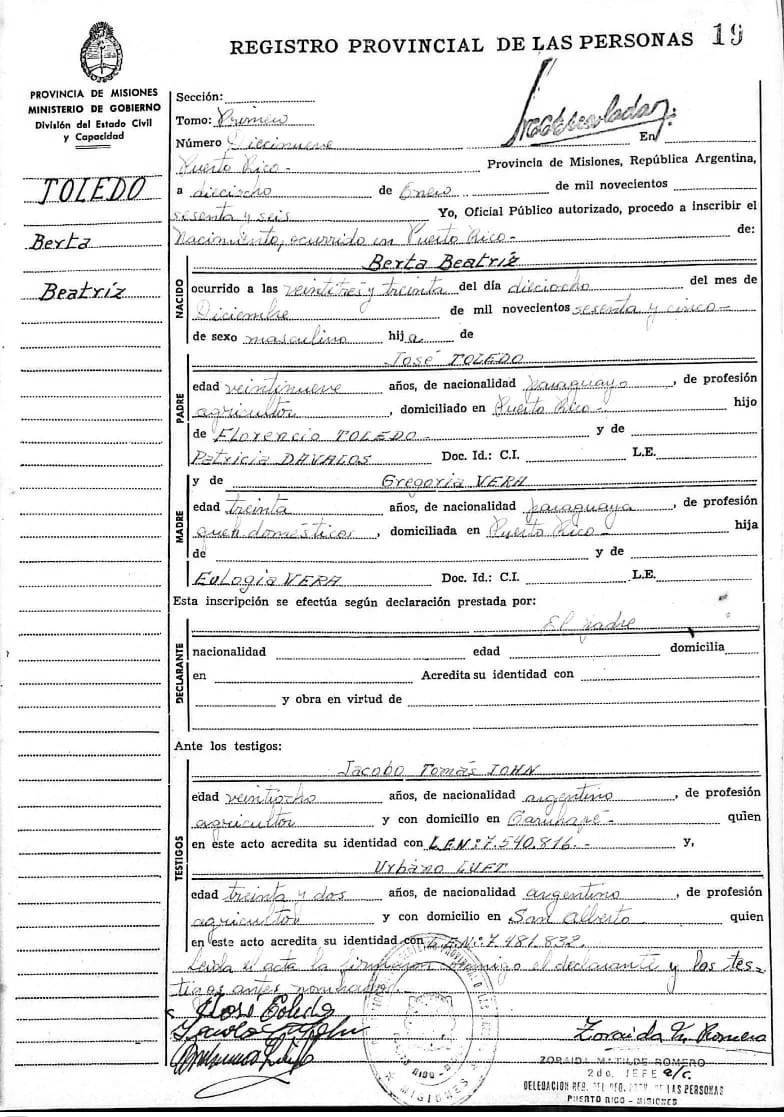 REGISTRO PROVINCIAL DE LAS PERSONAS 19
PROVINCIA DE MISIONES
MINISTERIO DE GOBIERNO
División del Estado Civil
y Capacidad
TOLEDO
Berta
Beatríz
Sección:
Tomo: Primero
Número Diecinueve En
Puerto Rico.- Provincia de Misiones, República Argentina,
a dieciocho de Enero de mil novecientos
sesenta y seis Yo, Oficial Público autorizado, procedo a inscribir el
Nacimiento, ocurrido en Puerto Rico.- de:
NACIDO
Berta Beatríz
ocurrido a las veintitres y treinta del día dieciocho del mes de
Diciembre de mil novecientos sesenta y cinco-
de sexo masculino hija de
PADRE
José TOLEDO
edad veintinueve años, de nacionalidad paraguayo, de profesión
agricultor, domiciliado en Puerto Rico.- hijo
de Florencio TOLEDO.- y de
Patricia DAVALOS Doc. Id.: C.I. L.E.
MADRE
y de Gregoria VERA
edad treinta años, de nacionalidad paraguaya, de profesión
domésticos, domiciliada en Puerto Rico.- hija
de y de
Eulogia VERA Doc. Id.: C.I. L.E.
Esta inscripción se efectúa según declaración prestada por:
El padre
DECLARANTE
nacionalidad edad domicilia
en Acredita su identidad con
y obra en virtud de
Ante los testigos:
TESTIGOS
Jacobo Tomás JOHN
edad veintiocho años, de nacionalidad argentino, de profesión
agricultor y con domicilio en Garuhapé.- quien
en este acto acredita su identidad con L.E.Nº:7.540.816.- y,
Urbano LUFT
edad treinta y dos años, de nacionalidad argentino, de profesión
agricultor y con domicilio en San Alberto quien
en este acto acredita su identidad con L.E.Nº:7.481.832.
Leída el acta la firmaron conmigo el declarante y los tes-
tigos antes nombrados.-
José Toledo
Zoraida M. Romero
ZORAIDA MATILDE ROMERO
2do. JEFE a/c.
DELEGACION REG. DEL REG. PROV. DE LAS PERSONAS
PUERTO RICO - MISIONES
MISIONES